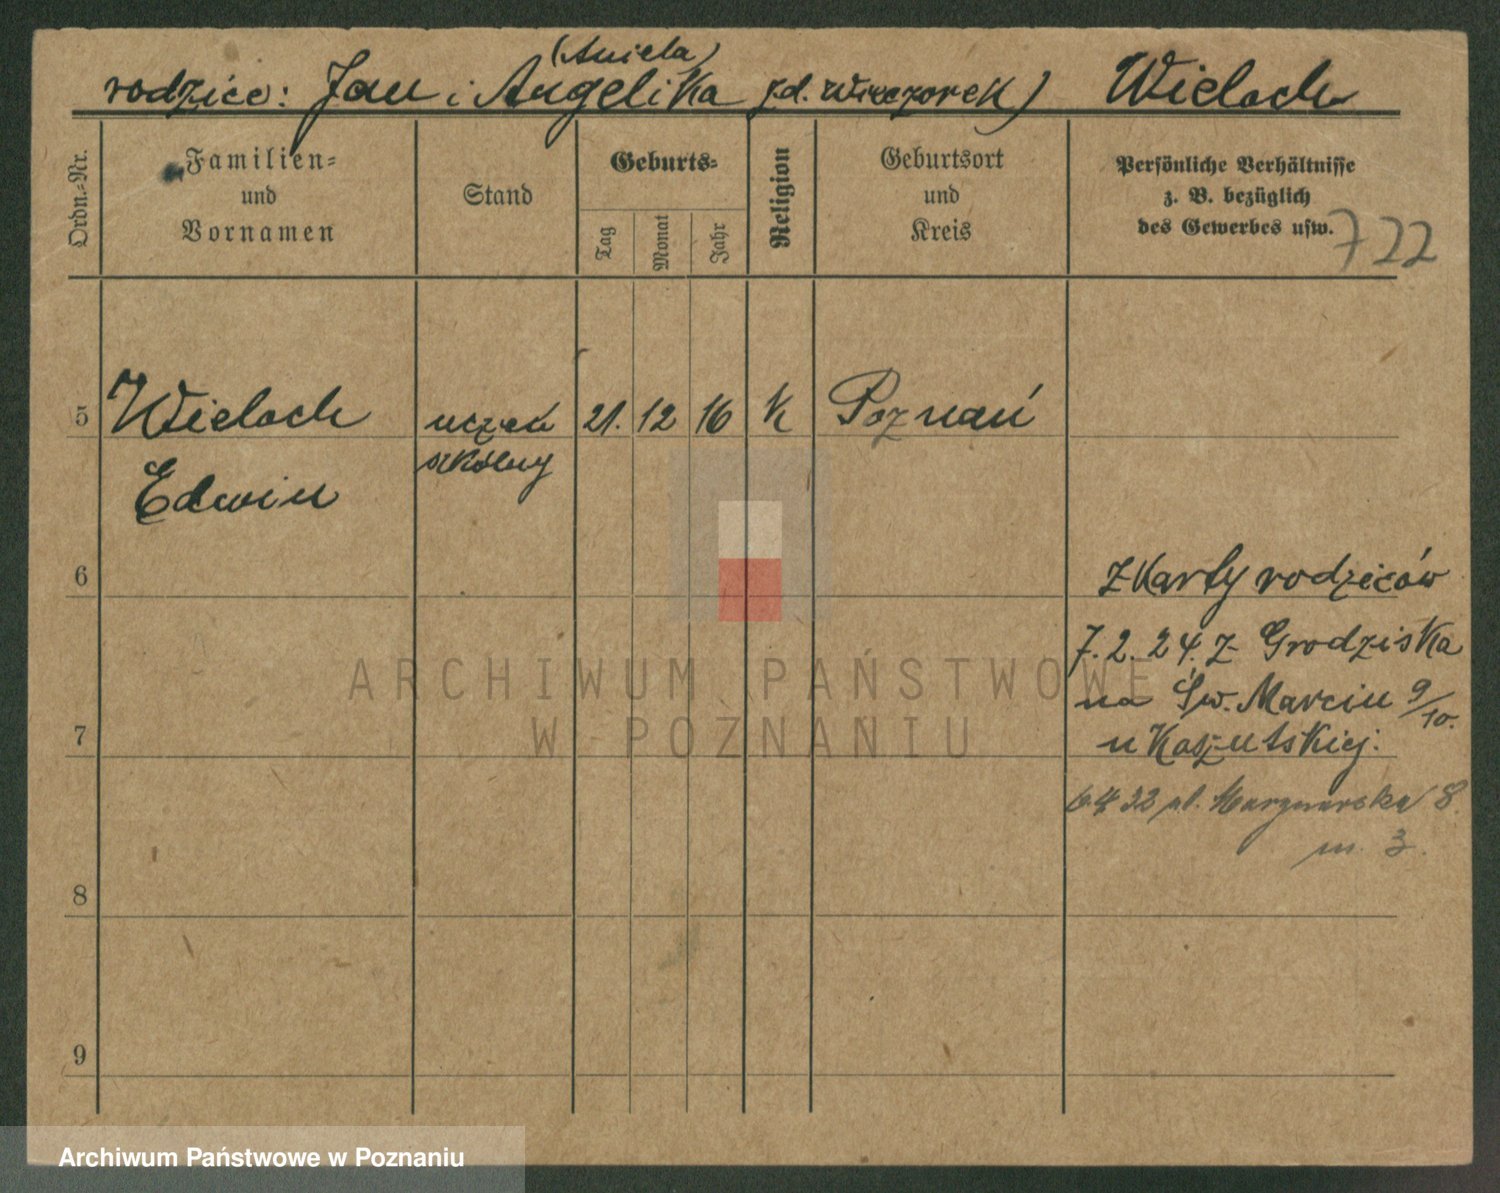 (Aniela)
rodzice: Jan i Angelika zd. Wieczorek) Wieloch
Ordn.-Nr.
Familien-
und
Vornamen
Stand
Geburts-
Tag
Monat
Jahr
Religion
Geburtsort
und
Kreis
Persönliche Verhältnisse
z. B. bezüglich
des Gewerbes usw.
722
5 Wieloch uczeń 21. 12 16 K Poznań
szkolny
Edwin
6
z Karty rodziców
7. 2. 24. z Grodziska
na Św. Marcin 9/10.
7
u Koszutskiej.
6 4 32 ul. Marynarska 8.
m. 3.
8
9
ARCHIWUM PAŃSTWOWE
W POZNANIU
Archiwum Państwowe w Poznaniu